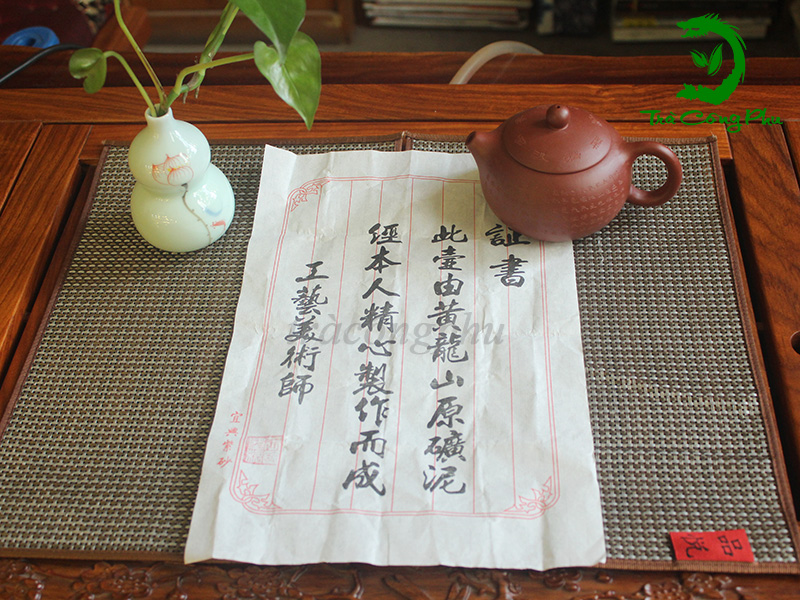 證書
此壺由黃龍山原礦泥
經本人精心製作而成
工藝美術師
宜興紫砂
品悅
Trà Công Phu
tràcôngphu